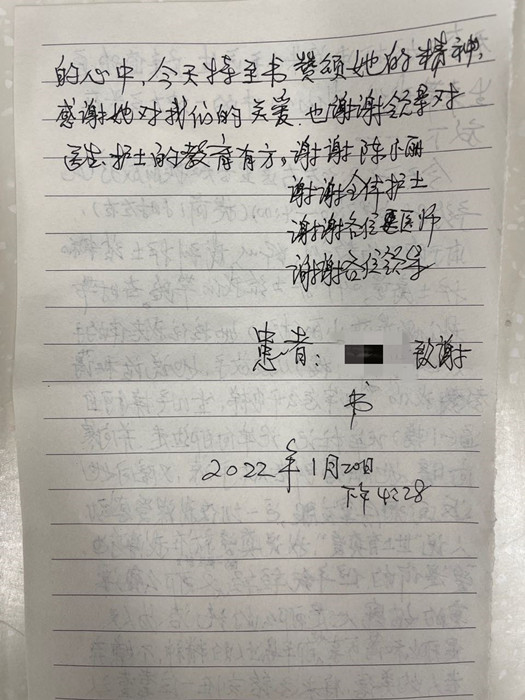 的心中,今天特至书赞颂她的精神,
感谢她对我们的关爱.也谢谢领导对
医生护士的教育有方。谢谢陈小丽
谢谢全体护士
谢谢各位医师
谢谢各位领导
患者: 致谢
书
2022年1月20日
下午4:28